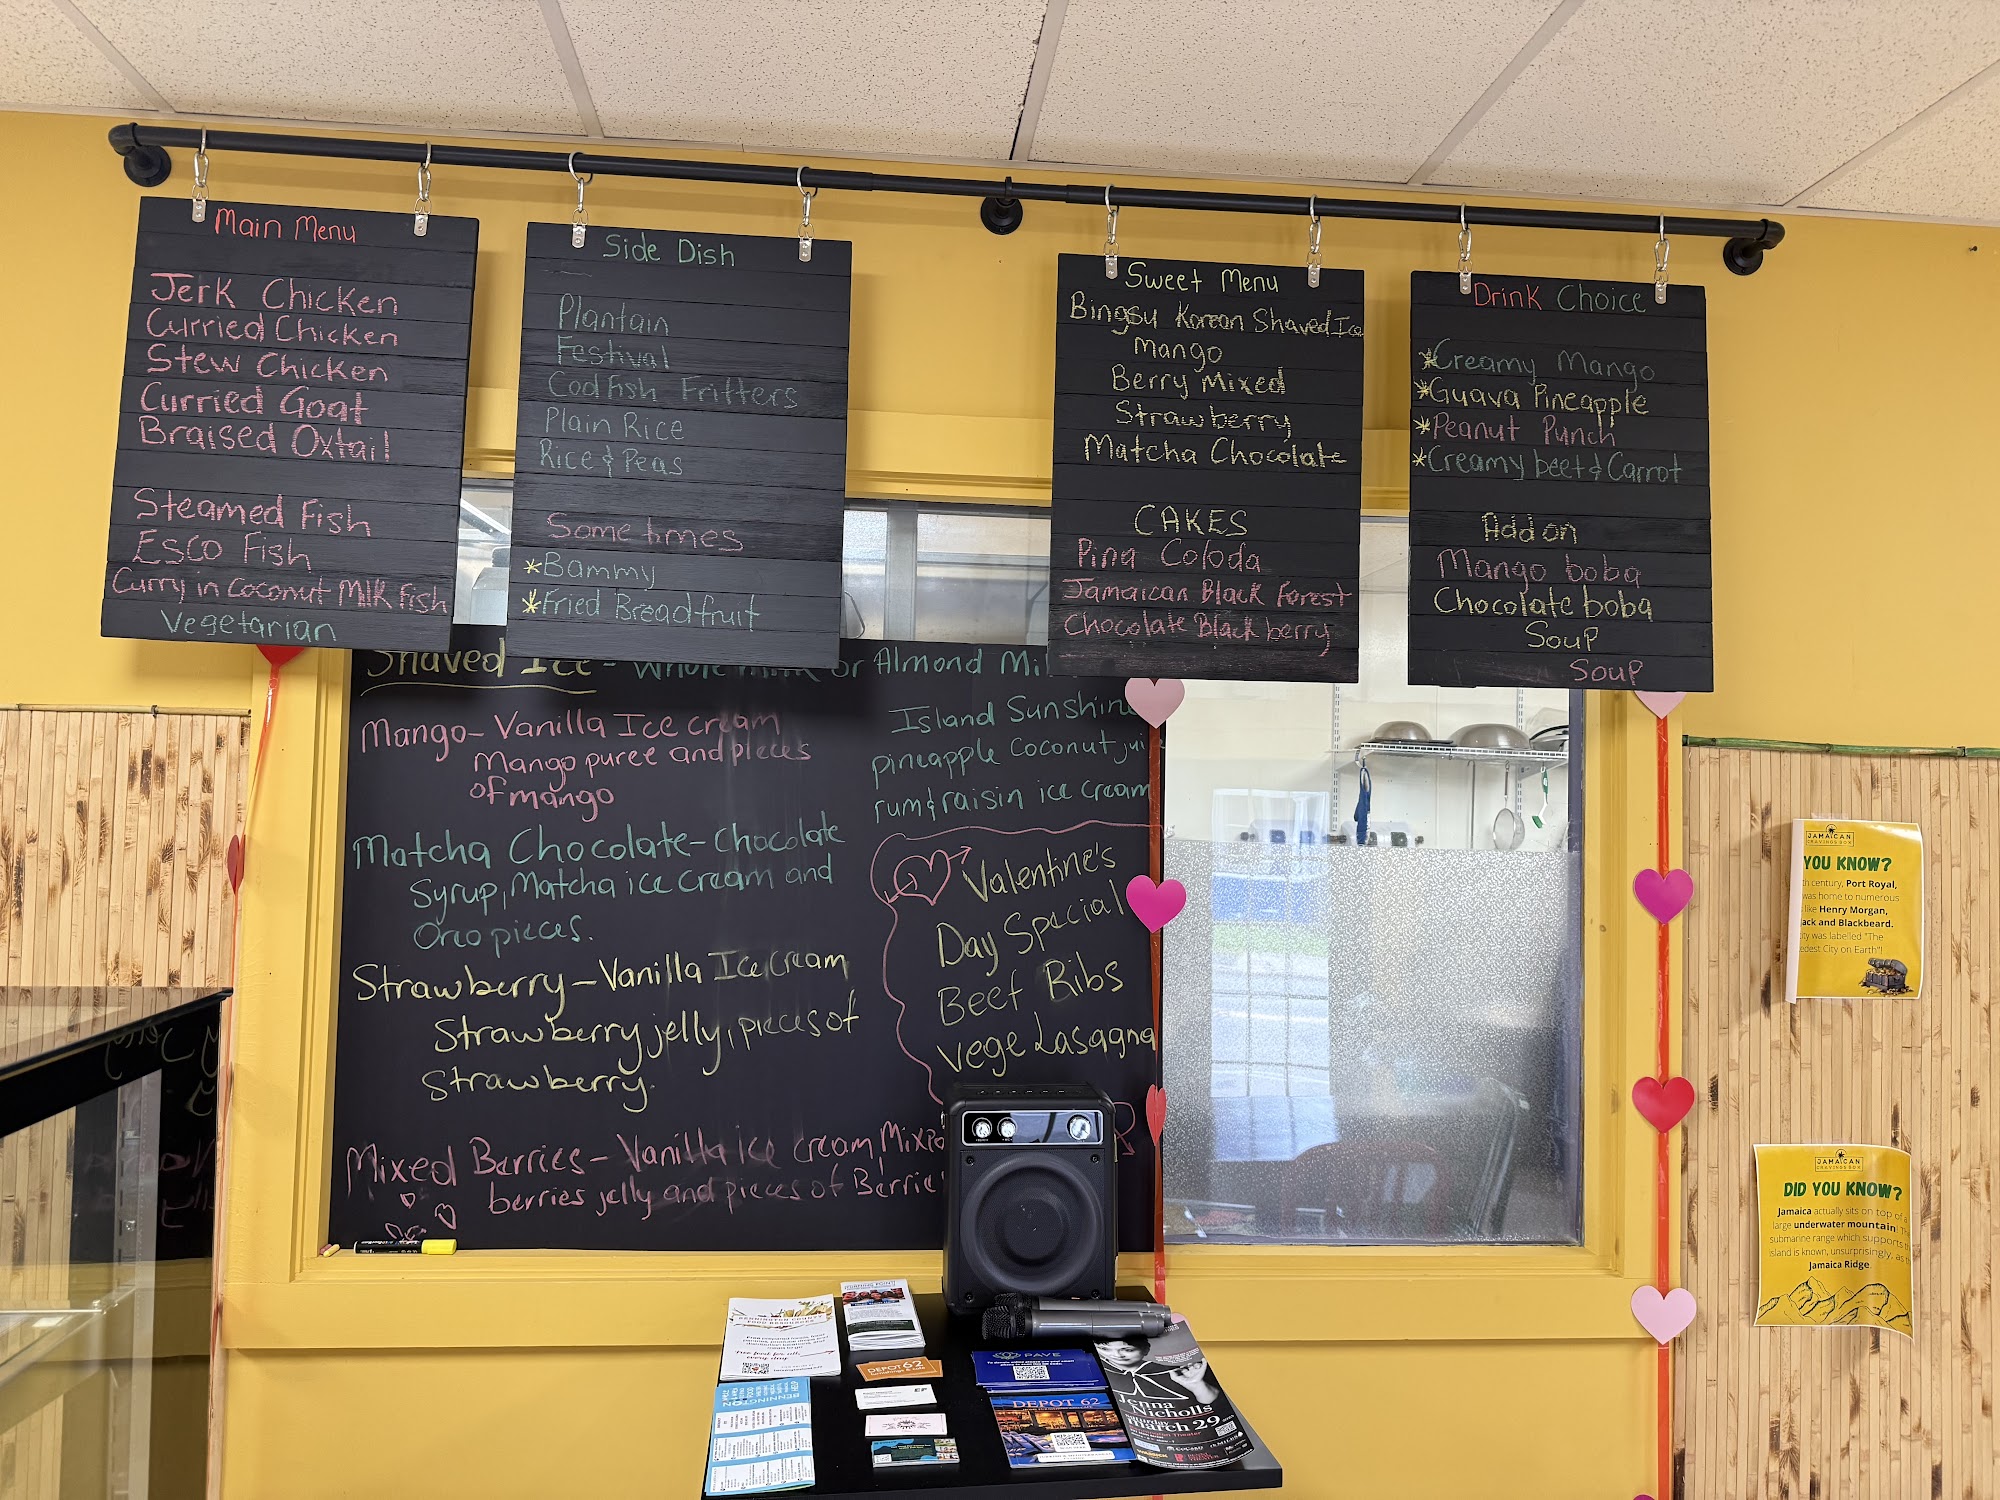 Main Menu
Jerk Chicken
Curried Chicken
Stew Chicken
Curried Goat
Braised Oxtail
Steamed Fish
Esco Fish
Curry in Coconut Milk Fish
Vegetarian
Side Dish
Plantain
Festival
Codfish Fritters
Plain Rice
Rice & Peas
Sometimes
*Bammy
*Fried Breadfruit
Sweet Menu
Bingsu Korean Shaved Ice
Mango
Berry Mixed
Strawberry
Matcha Chocolate
CAKES
Pina Coloda
Jamaican Black Forest
Chocolate Black berry
Drink Choice
*Creamy Mango
*Guava Pineapple
*Peanut Punch
*Creamy beet & Carrot
Add on
Mango boba
Chocolate boba
Soup
Soup
Shaved Ice - Whole Milk or Almond Mi
Mango - Vanilla Ice cream
Mango puree and pieces
of mango
Matcha Chocolate - Chocolate
Syrup, Matcha ice cream and
Oreo pieces.
Strawberry - Vanilla Ice Cream
Strawberry jelly, pieces of
Strawberry.
Mixed Berries - Vanilla ice cream Mixed
berries jelly and pieces of Berrie
Island Sunshine
pineapple coconut jui
rum & raisin ice cream
Valentine's
Day Special
Beef Ribs
vege Lasagna
JAMAICAN
CRAVINGS BOX
YOU KNOW?
th century, Port Royal,
was home to numerous
like Henry Morgan,
ack and Blackbeard.
ity was labelled "The
edest City on Earth"!
JAMAICAN
CRAVINGS BOX
DID YOU KNOW?
Jamaica actually sits on top of a
large underwater mountain!
submarine range which supports th
island is known, unsurprisingly, as
Jamaica Ridge.
BENNINGTON COUNTY
FOOD RESOURCES
Free food for all,
every day
TURNING POINT
DEPOT 62
EP
PAVE
DEPOT 62
BENNINGTON
Jenna
Nicholls
Saturday
March 29